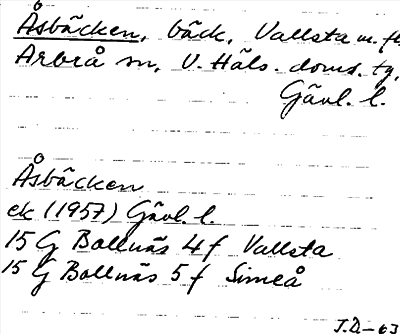 Åsbäcken, bäck, Vallsta m. fl.
Arbrå sn, V. Häls. doms. tg,
Gävl. l.
Åsbäcken
ek (1957) Gävl. l.
15 G Bollnäs 4 f Vallsta
15 G Bollnäs 5 f Simeå
J.D-63